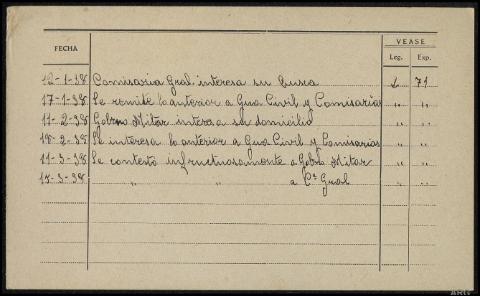 FECHA
VEASE
Leg. Exp.
12-1-38 Comisaria Gral. interesa su busca 2 71
17-1-38 Se remite lo anterior a Gua Civil y Comisarias " "
11-2-38 Gobrno Mitar interesa su domicilio " "
18-2-38 Se interesa lo anterior a Gua Civil y Comisarias " "
11-3-38 Se contestó infructuosamente a Gobno Mitar " "
14-3-38 " " a Cª Gral " "